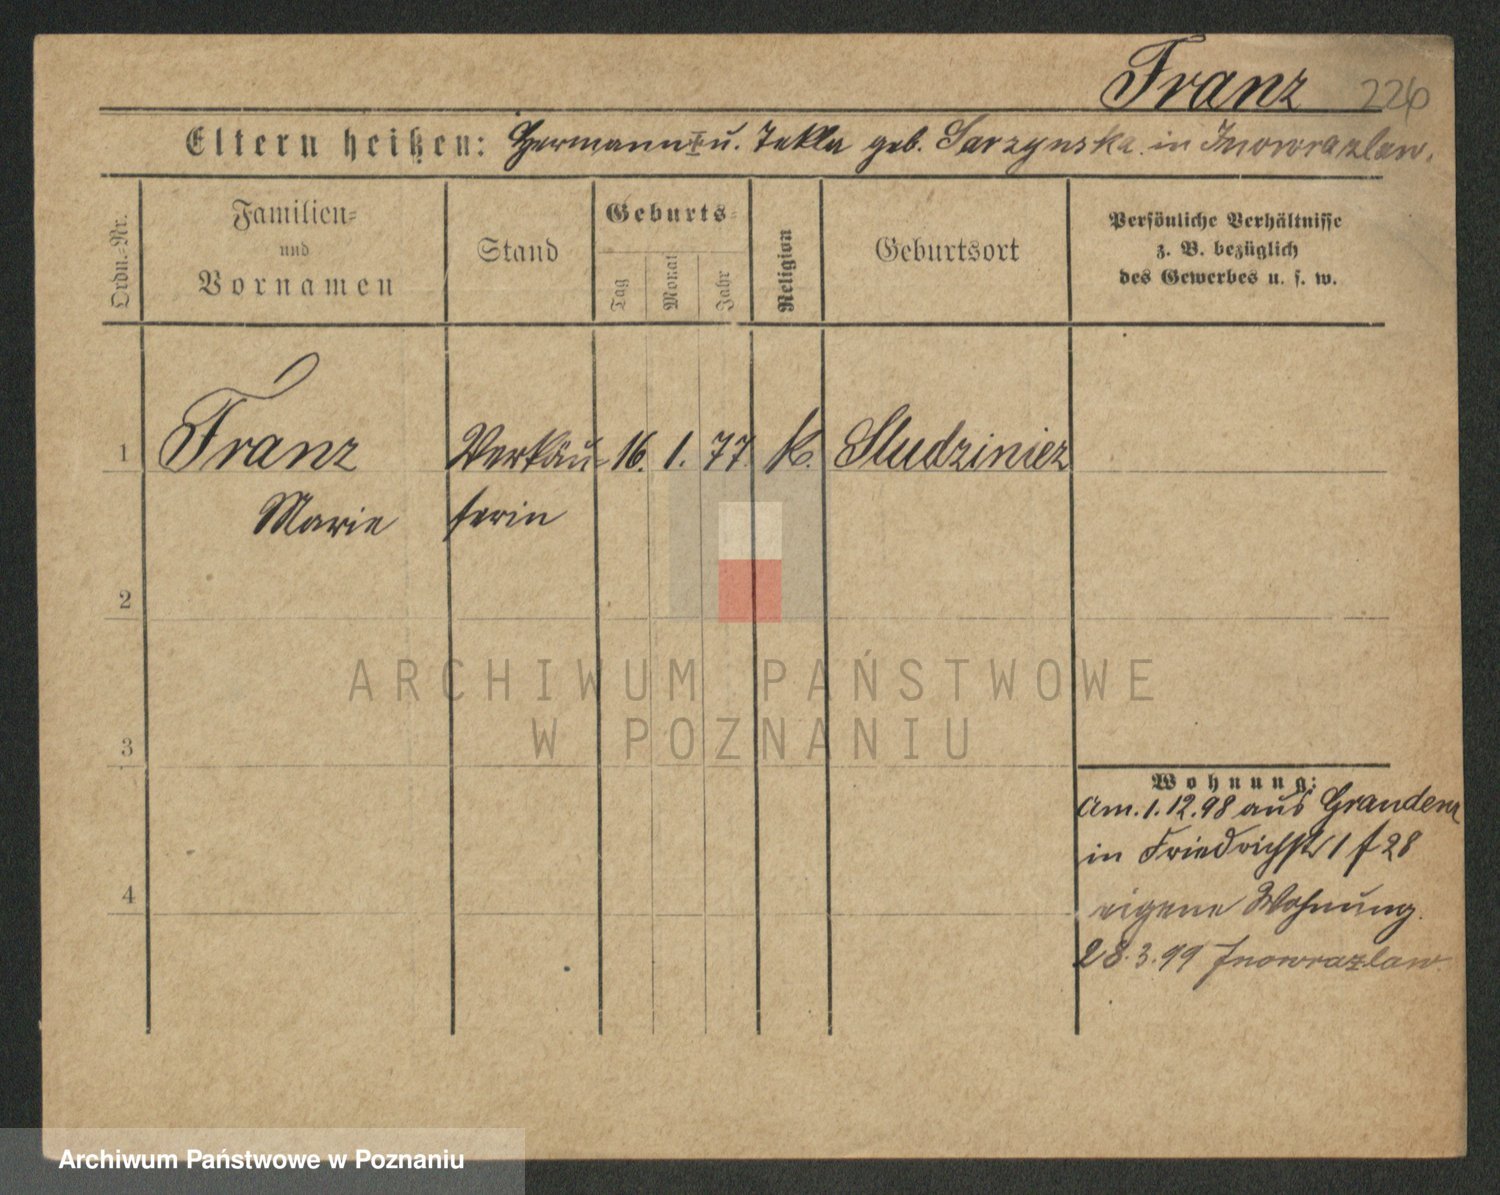 Franz 226
Eltern heißen: Hermann I u. Tekla geb. Sarzynska in Inowrazlaw.
Ordn.-Nr.
Familien-
und
Vornamen
Stand
Geburts-
Tag
Monat
Jahr
Religion
Geburtsort
Persönliche Verhältnisse
z. B. bezüglich
des Gewerbes u. s. w.
1 Franz Verkäu- 16. 1. 77 k. Studziniez
Marie ferin
2
ARCHIWUM PAŃSTWOWE
W POZNANIU
3
Wohnung:
am. 1.12.98 aus Graudenz
in Friedrichstr 1 f 28
4
eigene Wohnung.
28.3.99 Inowrazlaw.
Archiwum Państwowe w Poznaniu